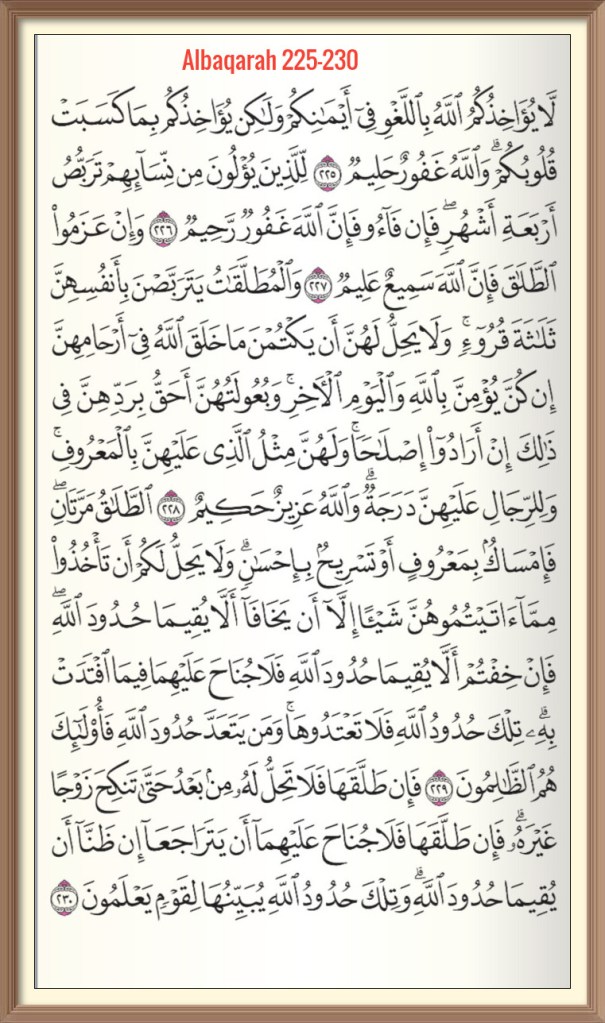 Albaqarah 225-230
لَّا يُؤَاخِذُكُمُ ٱللَّهُ بِٱللَّغْوِ فِىٓ أَيْمَـٰنِكُمْ وَلَـٰكِن يُؤَاخِذُكُم بِمَا كَسَبَتْ
قُلُوبُكُمْ ۗ وَٱللَّهُ غَفُورٌ حَلِيمٌ ٢٢٥ لِّلَّذِينَ يُؤْلُونَ مِن نِّسَآئِهِمْ تَرَبُّصُ
أَرْبَعَةِ أَشْهُرٍ ۖ فَإِن فَآءُو فَإِنَّ ٱللَّهَ غَفُورٌ رَّحِيمٌ ٢٢٦ وَإِنْ عَزَمُوا۟
ٱلطَّلَـٰقَ فَإِنَّ ٱللَّهَ سَمِيعٌ عَلِيمٌ ٢٢٧ وَٱلْمُطَلَّقَـٰتُ يَتَرَبَّصْنَ بِأَنفُسِهِنَّ
ثَلَـٰثَةَ قُرُوٓءٍ ۚ وَلَا يَحِلُّ لَهُنَّ أَن يَكْتُمْنَ مَا خَلَقَ ٱللَّهُ فِىٓ أَرْحَامِهِنَّ
إِن كُنَّ يُؤْمِنَّ بِٱللَّهِ وَٱلْيَوْمِ ٱلْـَٔاخِرِ ۚ وَبُعُولَتُهُنَّ أَحَقُّ بِرَدِّهِنَّ فِى
ذَٰلِكَ إِنْ أَرَادُوٓا۟ إِصْلَـٰحًا ۚ وَلَهُنَّ مِثْلُ ٱلَّذِى عَلَيْهِنَّ بِٱلْمَعْرُوفِ ۚ
وَلِلرِّجَالِ عَلَيْهِنَّ دَرَجَةٌ ۗ وَٱللَّهُ عَزِيزٌ حَكِيمٌ ٢٢٨ ٱلطَّلَـٰقُ مَرَّتَانِ ۖ
فَإِمْسَاكٌۢ بِمَعْرُوفٍ أَوْ تَسْرِيحٌۢ بِإِحْسَـٰنٍ ۗ وَلَا يَحِلُّ لَكُمْ أَن تَأْخُذُوا۟
مِمَّآ ءَاتَيْتُمُوهُنَّ شَيْـًٔا إِلَّآ أَن يَخَافَآ أَلَّا يُقِيمَا حُدُودَ ٱللَّهِ ۖ
فَإِنْ خِفْتُمْ أَلَّا يُقِيمَا حُدُودَ ٱللَّهِ فَلَا جُنَاحَ عَلَيْهِمَا فِيمَا ٱفْتَدَتْ
بِهِۦ ۗ تِلْكَ حُدُودُ ٱللَّهِ فَلَا تَعْتَدُوهَا ۚ وَمَن يَتَعَدَّ حُدُودَ ٱللَّهِ فَأُو۟لَـٰٓئِكَ
هُمُ ٱلظَّـٰلِمُونَ ٢٢٩ فَإِن طَلَّقَهَا فَلَا تَحِلُّ لَهُۥ مِنۢ بَعْدُ حَتَّىٰ تَنكِحَ زَوْجًا
غَيْرَهُۥ ۗ فَإِن طَلَّقَهَا فَلَا جُنَاحَ عَلَيْهِمَآ أَن يَتَرَاجَعَآ إِن ظَنَّآ أَن
يُقِيمَا حُدُودَ ٱللَّهِ ۗ وَتِلْكَ حُدُودُ ٱللَّهِ يُبَيِّنُهَا لِقَوْمٍ يَعْلَمُونَ ٢٣٠